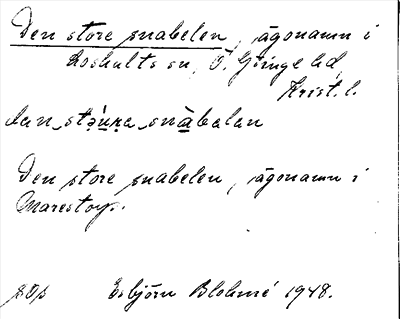 Den store snabelen, ägonamn i
Loshults sn, Ö. Göinge hd,
Krist. l.
dan stǝu̯ra snàbalan
Den store snabelen, ägonamn i
Marestorp.
Esbjörn Blohmé 1948.